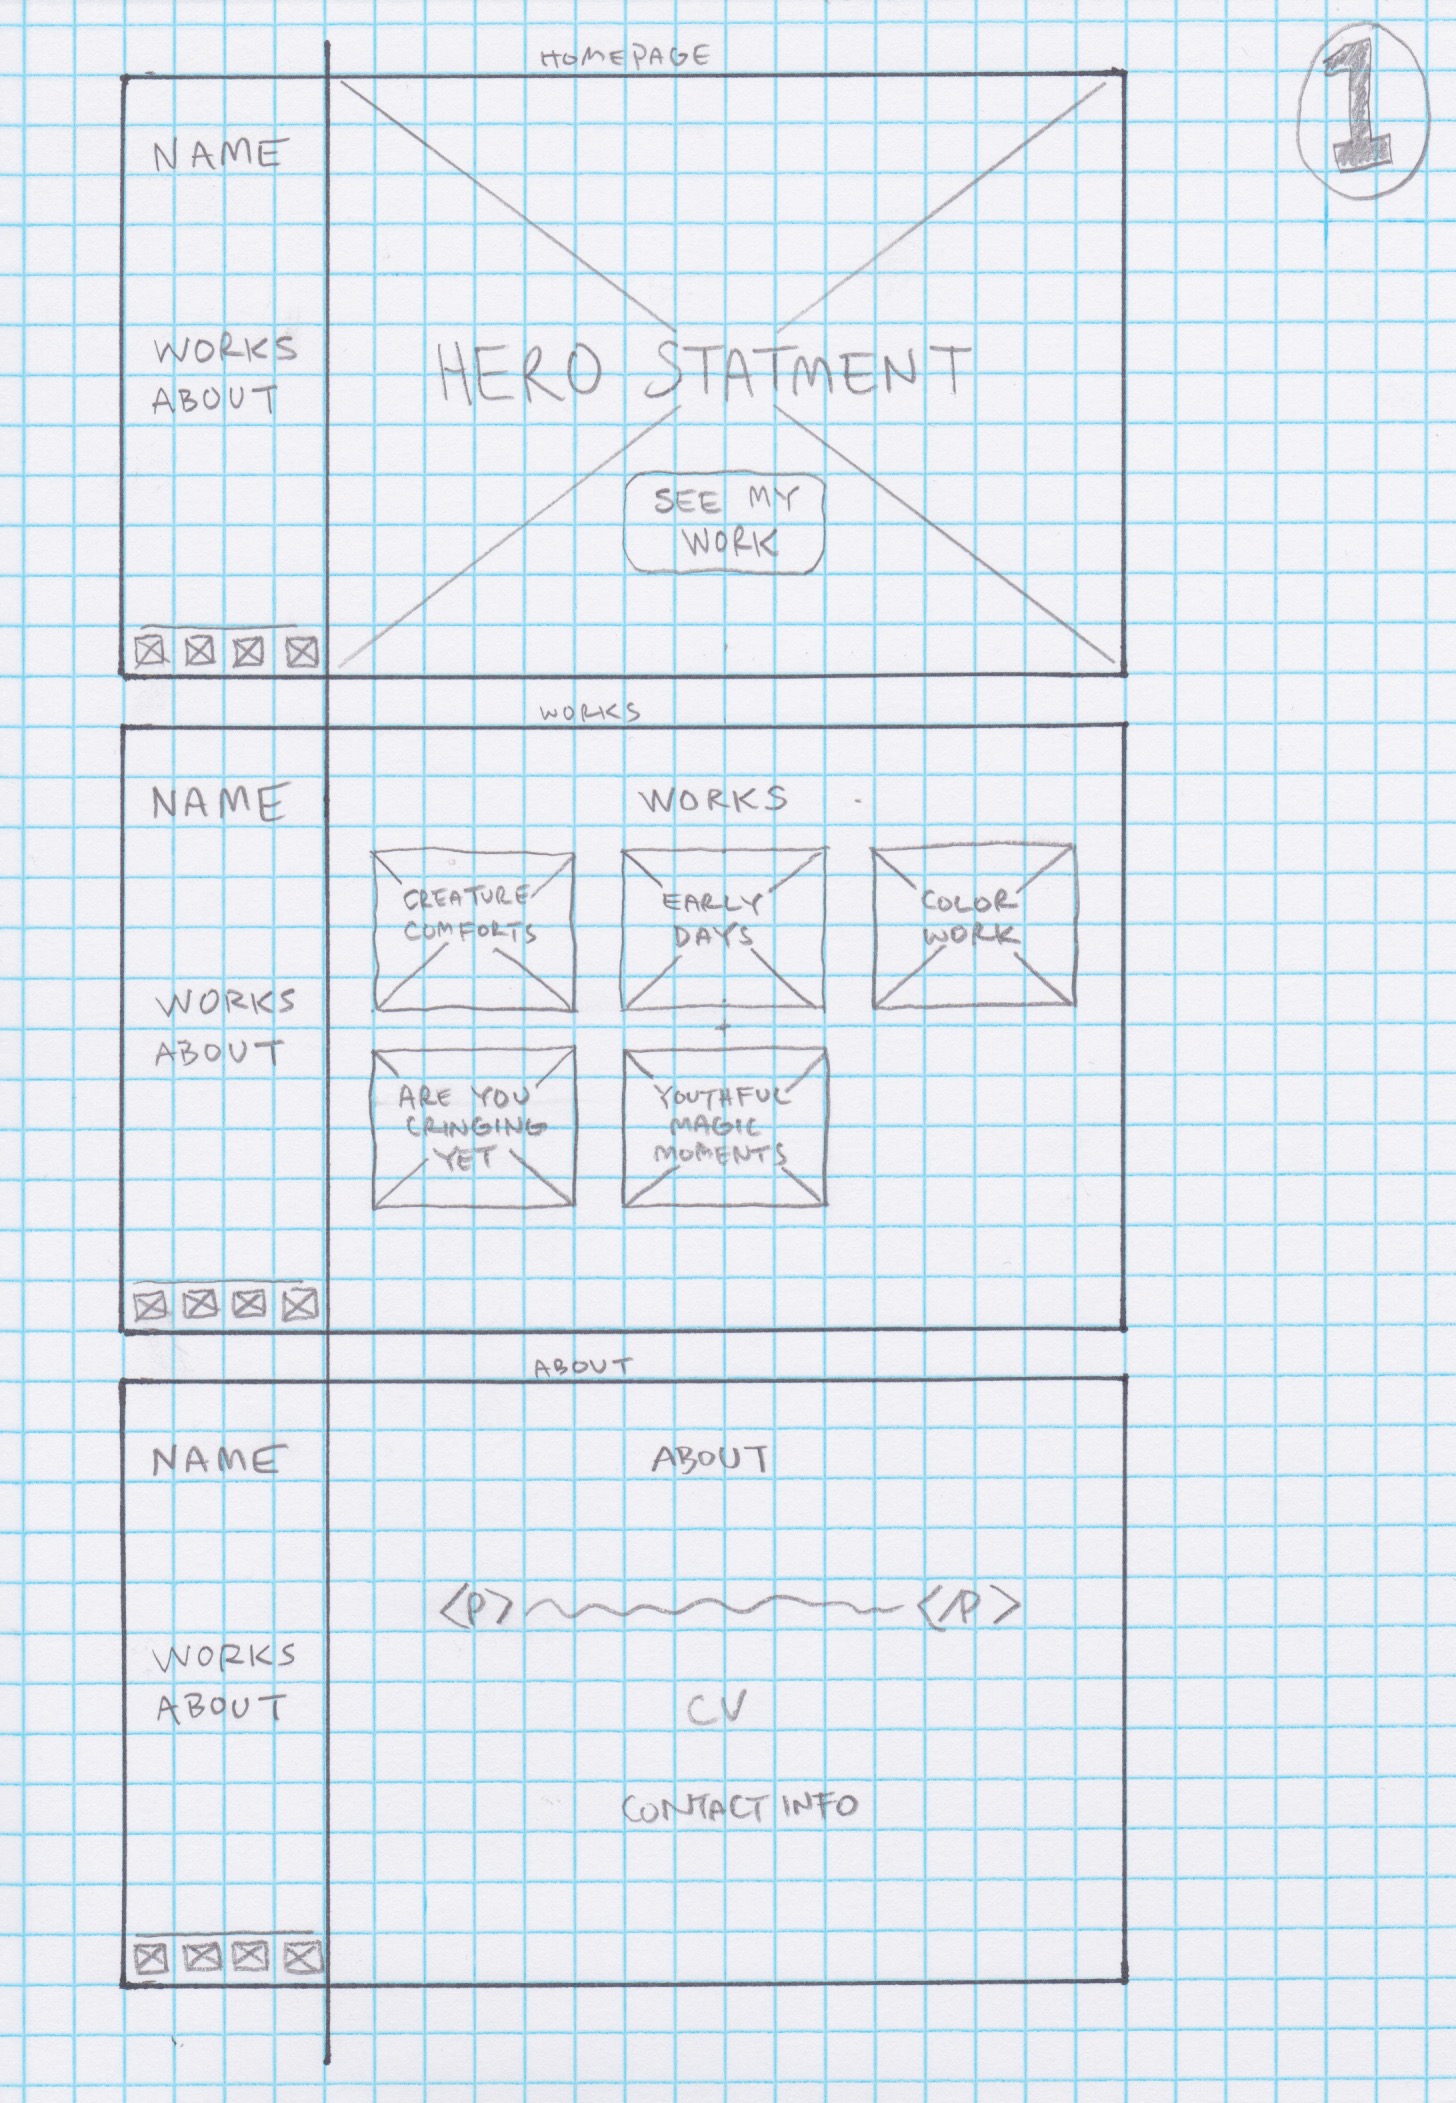 HOMEPAGE
1
NAME
WORKS
ABOUT
HERO STATMENT
SEE MY
WORK
WORKS
NAME
WORKS
ABOUT
WORKS
CREATURE
COMFORTS
EARLY
DAYS
COLOR
WORK
ARE YOU
CRINGING
YET
YOUTHFUL
MAGIC
MOMENTS
ABOUT
NAME
WORKS
ABOUT
ABOUT
<p> </p>
CV
CONTACT INFO